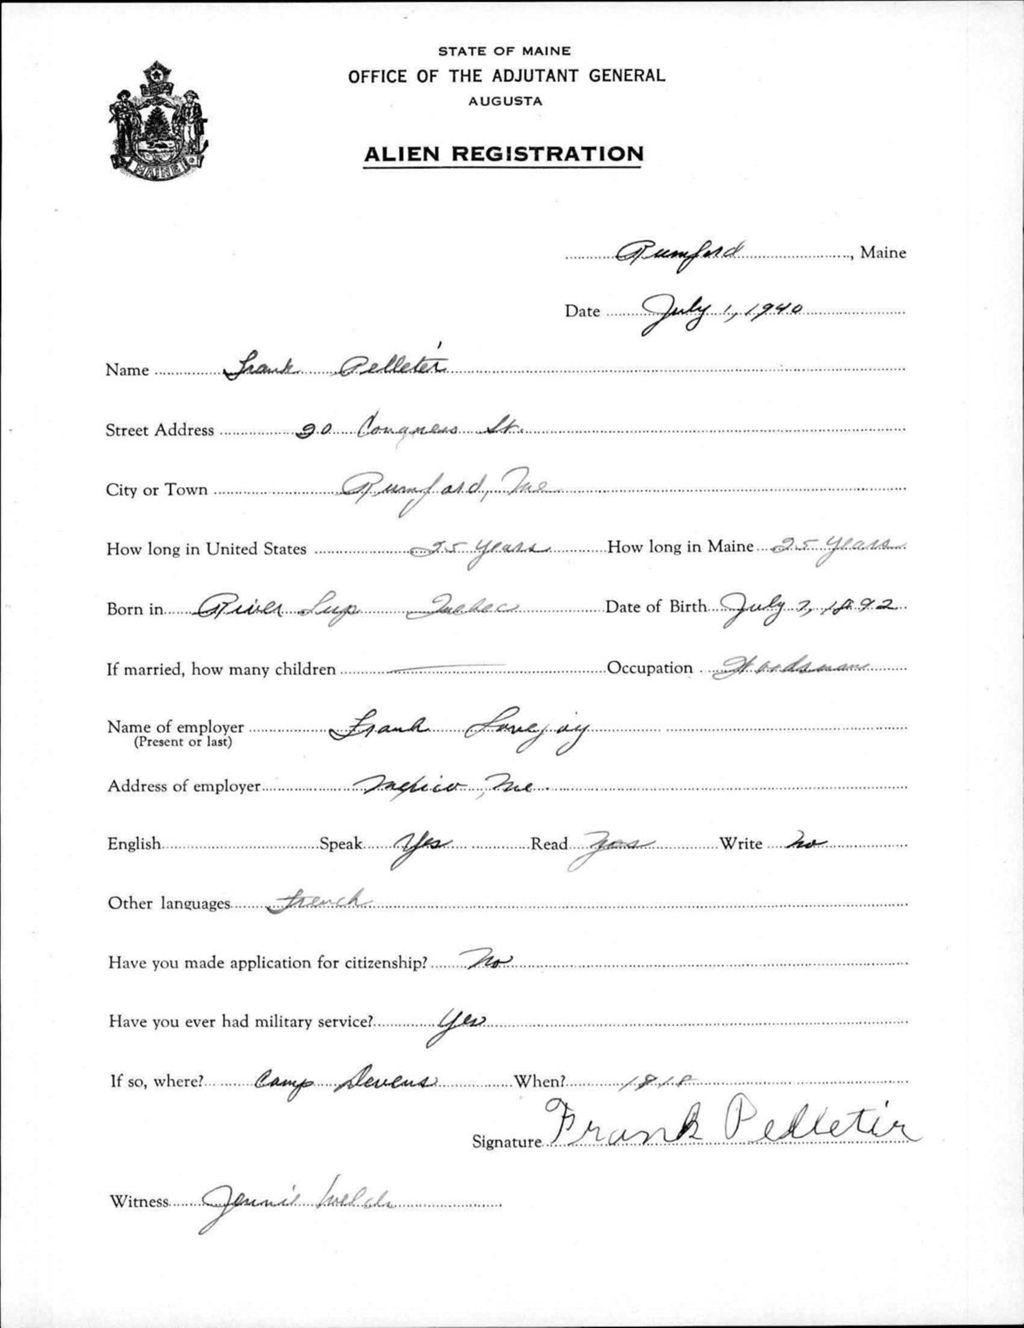 STATE OF MAINE
OFFICE OF THE ADJUTANT GENERAL
AUGUSTA
ALIEN REGISTRATION
MAINE
Rumford, Maine
Date July 1, 1940
Name Frank Pelletir
Street Address 90 Congress St.
City or Town Rumford, Me
How long in United States 25 years How long in Maine 25 years
Born in River Lup Quebec Date of Birth July 7, 1892
If married, how many children — Occupation Woodsman
Name of employer Frank Lovejoy
(Present or last)
Address of employer Mexico, Me.
English Speak Yes Read Yes Write No
Other languages French
Have you made application for citizenship? No
Have you ever had military service? Yes
If so, where? Camp Devens When? 1918
Signature Frank Pelletir
Witness Jennie Welch